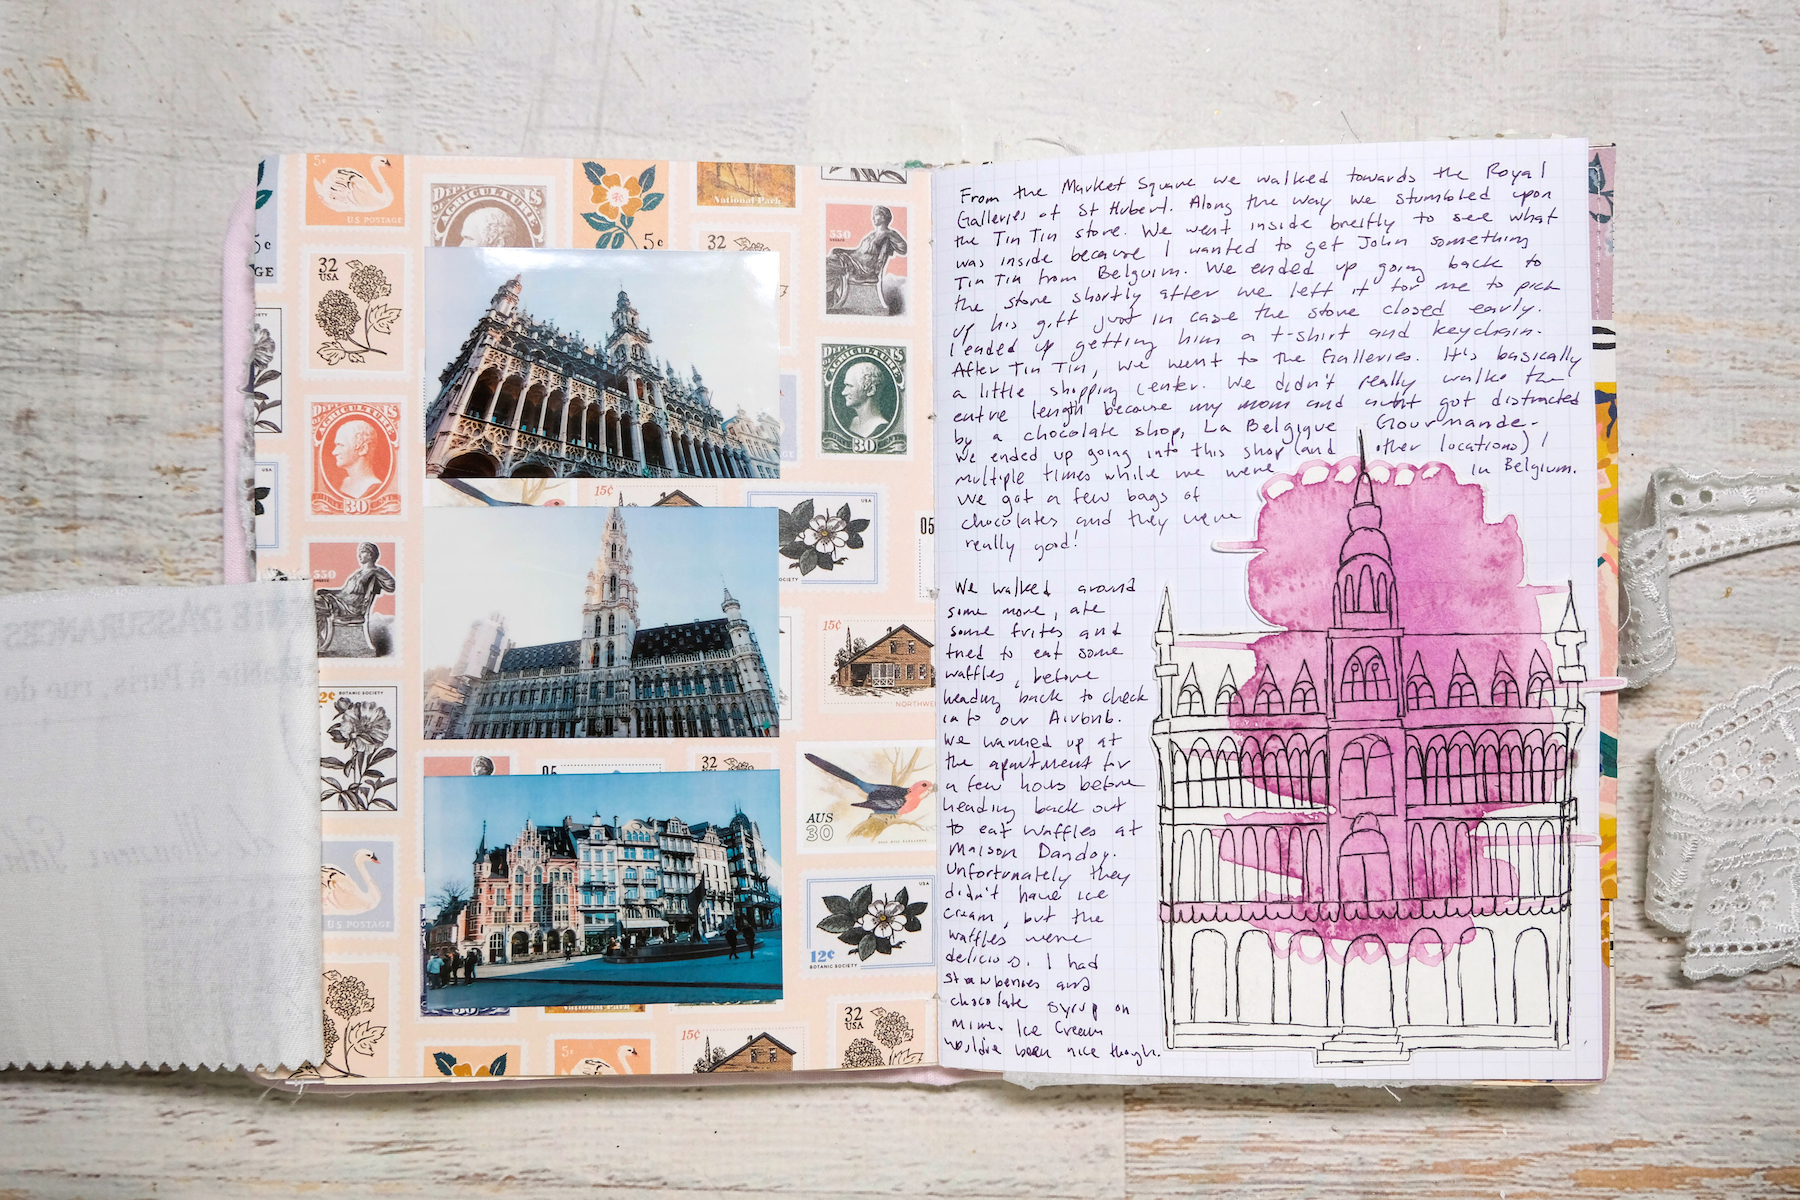 5c
U.S. POSTAGE
DEP'T
AGRICULTURE
5c
National Park
32
350
5c
GE
32
USA
DEP'T
30
AGRICULTURE
30
15¢
USA
05
SOCIETY
350
15¢
NORTHWE
12¢
BOTANIC SOCIETY
05
32
AUS
30
US POSTAGE
USA
12¢
BOTANIC SOCIETY
National Park
32
USA
15¢
5c
From the Market Square we walked towards the Royal
Galleries of St Hubert. Along the way we stumbled upon
the Tin Tin store. We went inside breifly to see what
was inside because I wanted to get John something
Tin Tin from Belguim. We ended up going back to
the store shortly after we left it for me to pick
up his gift just in case the store closed early.
I ended up getting him a t-shirt and keychain.
After Tin Tin, we went to the Galleries. It's basically
a little shopping center. We didn't really walk the
entire length because my mom and aunt got distracted
by a chocolate shop, La Belgique Gourmande.
We ended up going into this shop (and other locations)
multiple times while we were in Belgium.
We got a few bags of
chocolates and they were
really good!
We walked around
some more, ate
some frites and
tried to eat some
waffles, before
heading back to check
into our Airbnb.
We warmed up at
the apartment for
a few hours before
heading back out
to eat waffles at
Maison Dandoy.
Unfortunately they
didn't have ice
cream, but the
waffles were
delicious. I had
strawberries and
chocolate syrup on
mine. Ice Cream
would've been nice though.